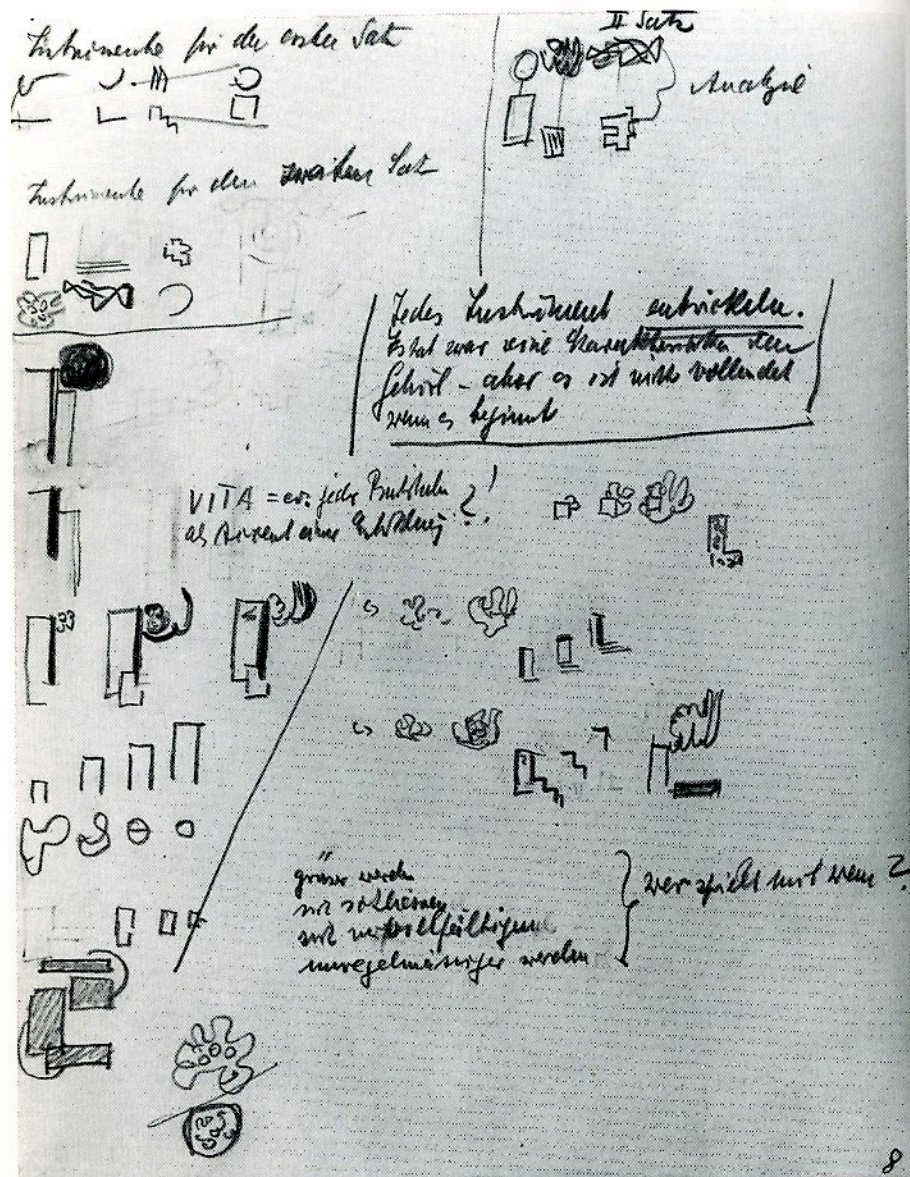 Instrumente für den ersten Satz
II Satz
Analyse
Instrumente für den zweiten Satz
Jedes Instrument entwickeln.
Es hat zwar eine
Gehört – aber es ist nicht vollendet
wenn es beginnt
VITA = ev. jedes ?!
als einer
grösser werden
sich schliessen
sich vervollfältigen
unregelmässiger werden
wer spielt mit wem?
8